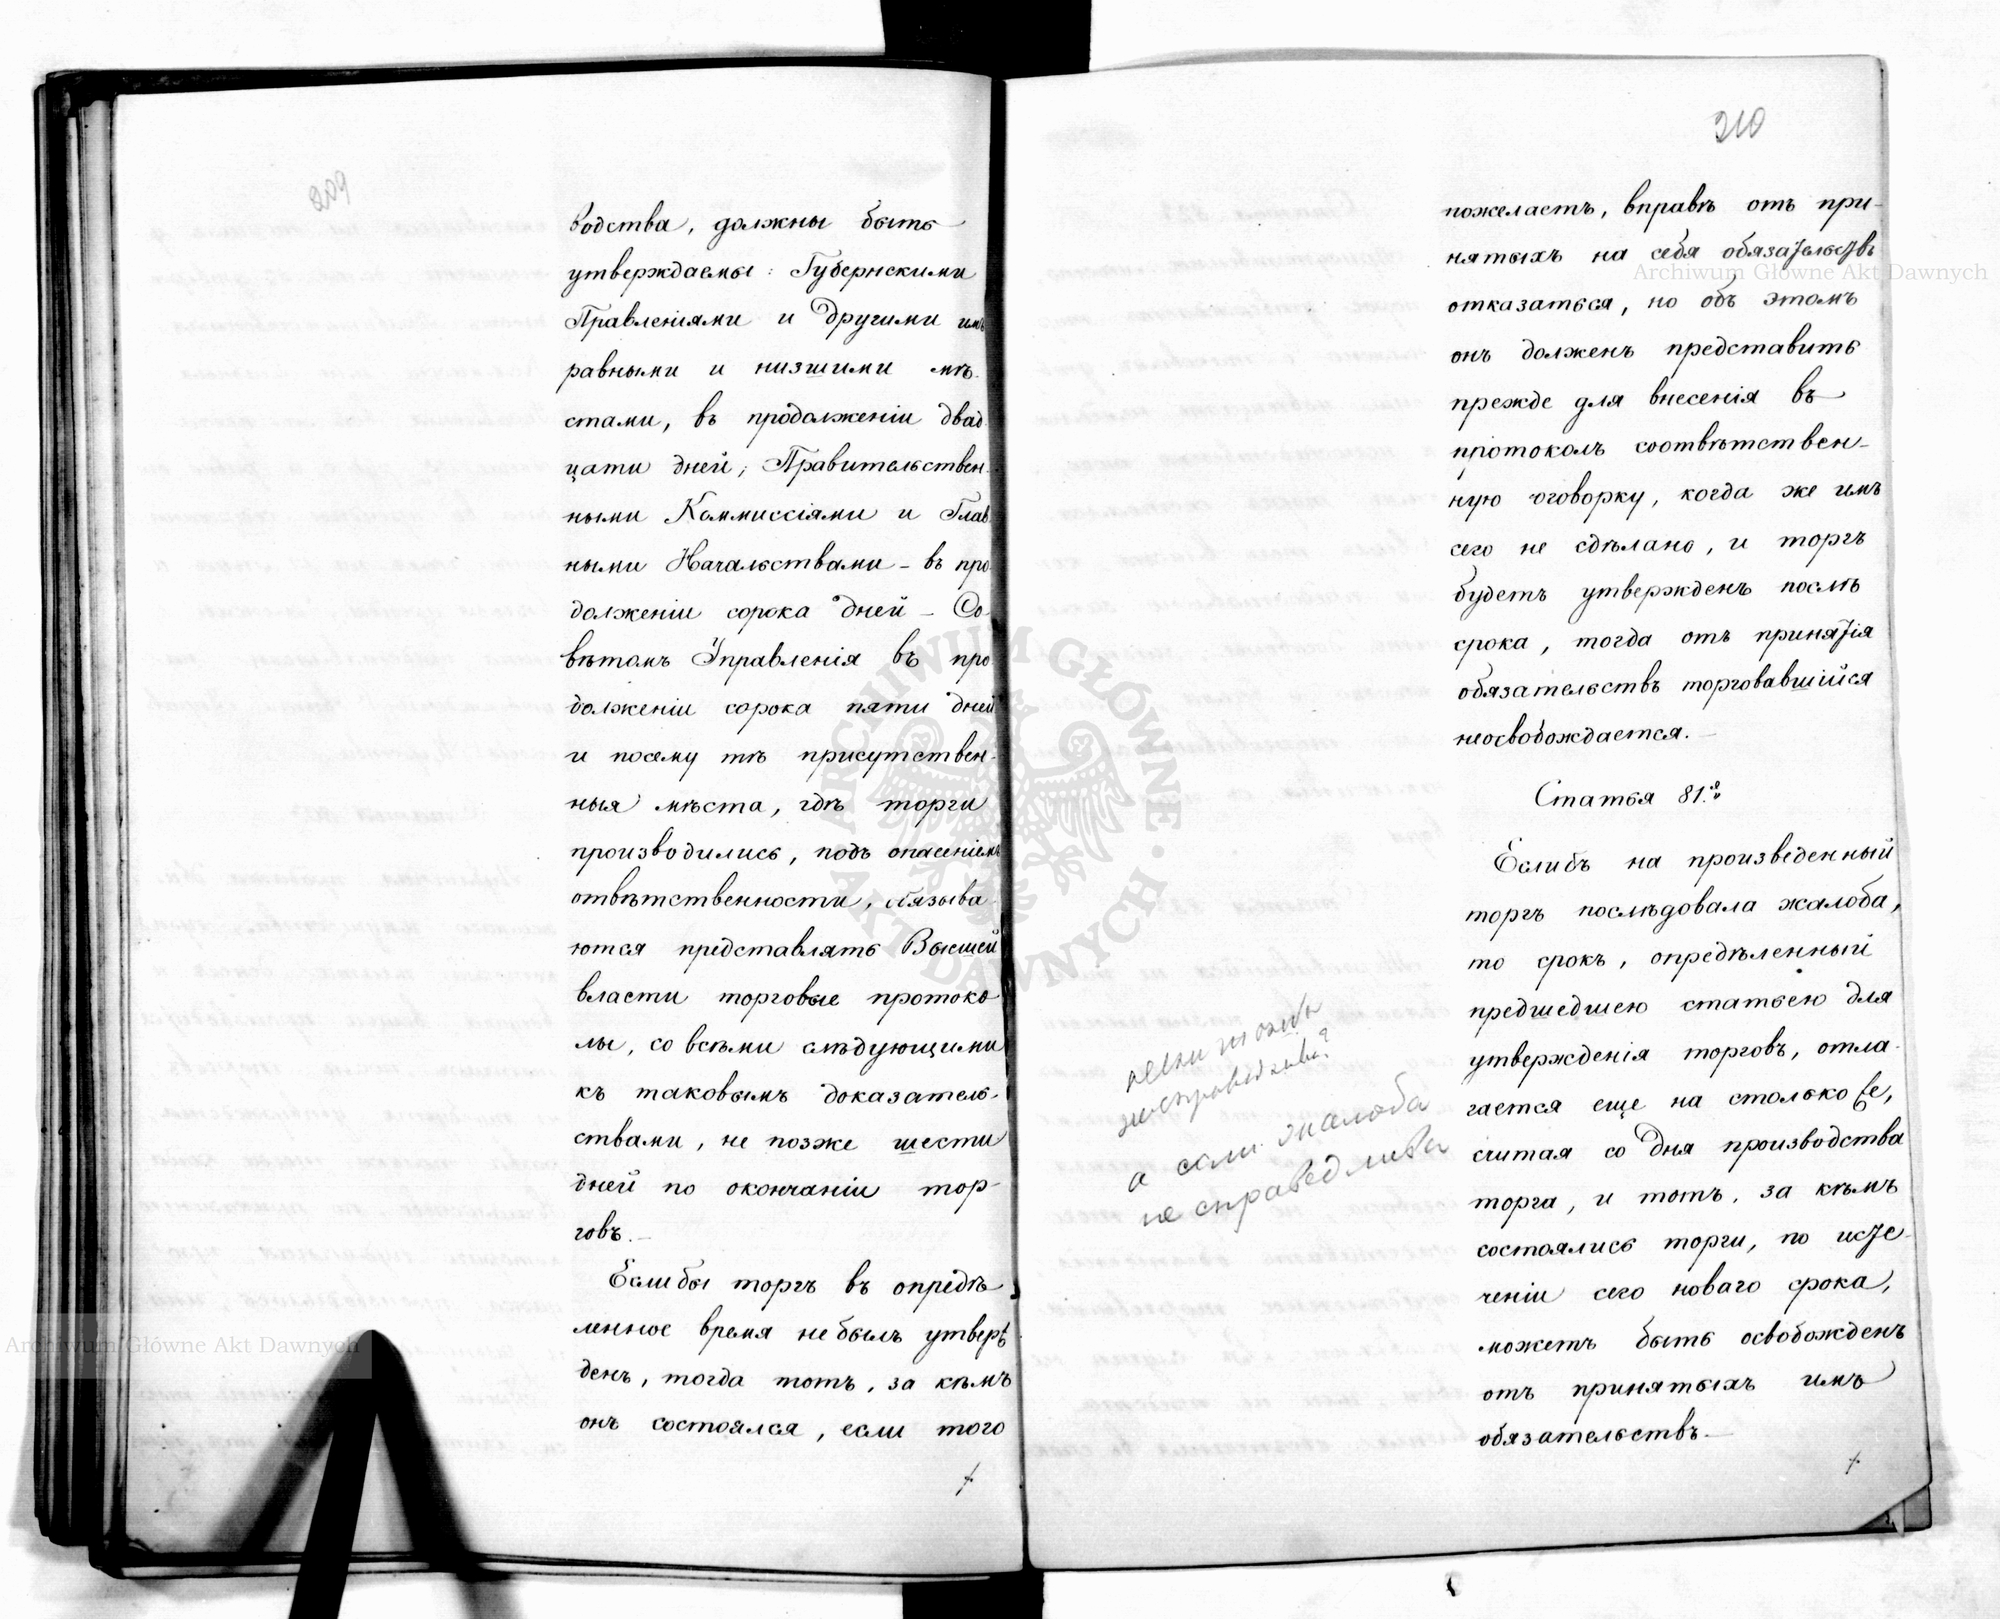 209
водства, должны быть
утверждаемы: Губернскими
Правленіями и Другими имъ
равными и низшими мѣ-
стами, въ продолженіи двад-
цати дней, Правительствен-
ными Коммиссіями и Глав-
ными Начальствами – въ про-
долженіи сорока дней – Со-
вѣтомъ Управленія въ про-
долженіи сорока пяти дней
и посему тѣ присутствен-
ныя мѣста, гдѣ торги
производились, подъ опасеніемъ
отвѣтственности, обязыва-
ются представлять Высшей
власти торговые протоко-
лы, со всѣми слѣдующими
къ таковымъ доказатель-
ствами, не позже шести
дней по окончаніи тор-
говъ. –
Еслибы торгъ въ опредѣ-
ленное время небылъ утверж-
денъ, тогда тотъ, за кѣмъ
онъ состоялся, если того
210
пожелаетъ, вправѣ отъ при-
нятыхъ на себя обязательствъ
отказаться, но объ этомъ
онъ долженъ представить
прежде для внесенія въ
протоколъ соотвѣтствен-
ную оговорку, когда же имъ
сего не сдѣлано, и торгъ
будетъ утвержденъ послѣ
срока, тогда отъ принятія
обязательствъ торговавшійся
неосвобождается. –
Статья 81.я
Еслибъ на произведенный
торгъ послѣдовала жалоба,
то срокъ, опредѣленный
предшедшею статьею для
утвержденія торговъ, отла-
гается еще на столько же,
считая со дня производства
торга, и тотъ, за кѣмъ
состоялись торги, по исте-
ченіи сего новаго срока,
можетъ быть освобожденъ
отъ принятыхъ имъ
обязательствъ. –
а если жалоба
не справедлива
Archiwum Główne Akt Dawnych
Archiwum Główne Akt Dawnych
ARCHIWUM GŁÓWNE · AKT DAWNYCH ·